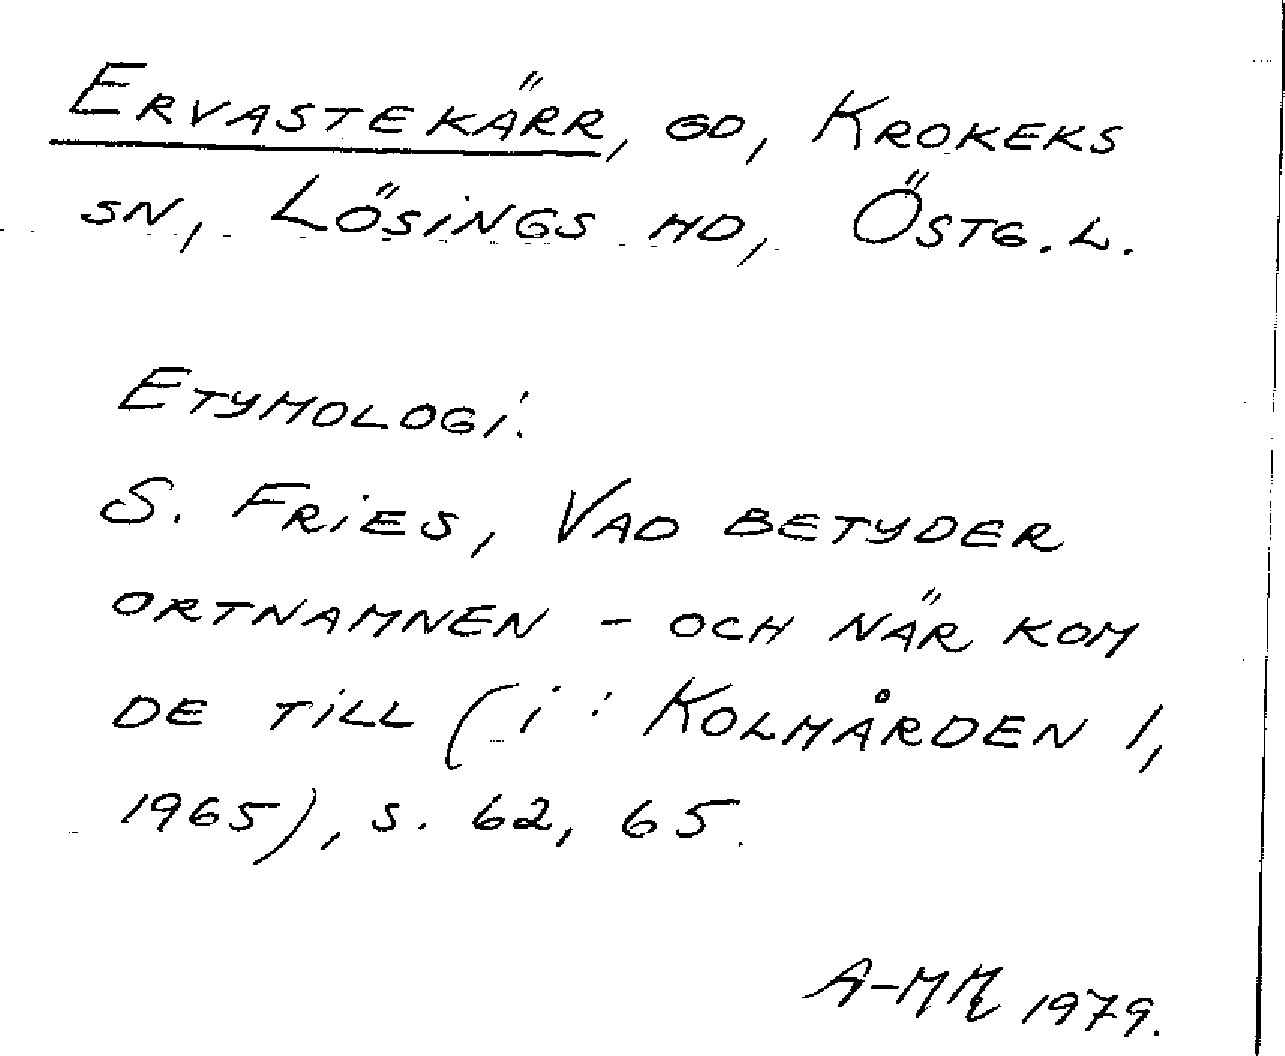 ERVASTEKÄRR, GD, KROKEKS
SN, LÖSINGS HD, ÖSTG. L.
ETYMOLOGI:
S. FRIES, VAD BETYDER
ORTNAMNEN - OCH NÄR KOM
DE TILL (i: KOLMÅRDEN 1,
1965), S. 62, 65.
A-MM 1979.